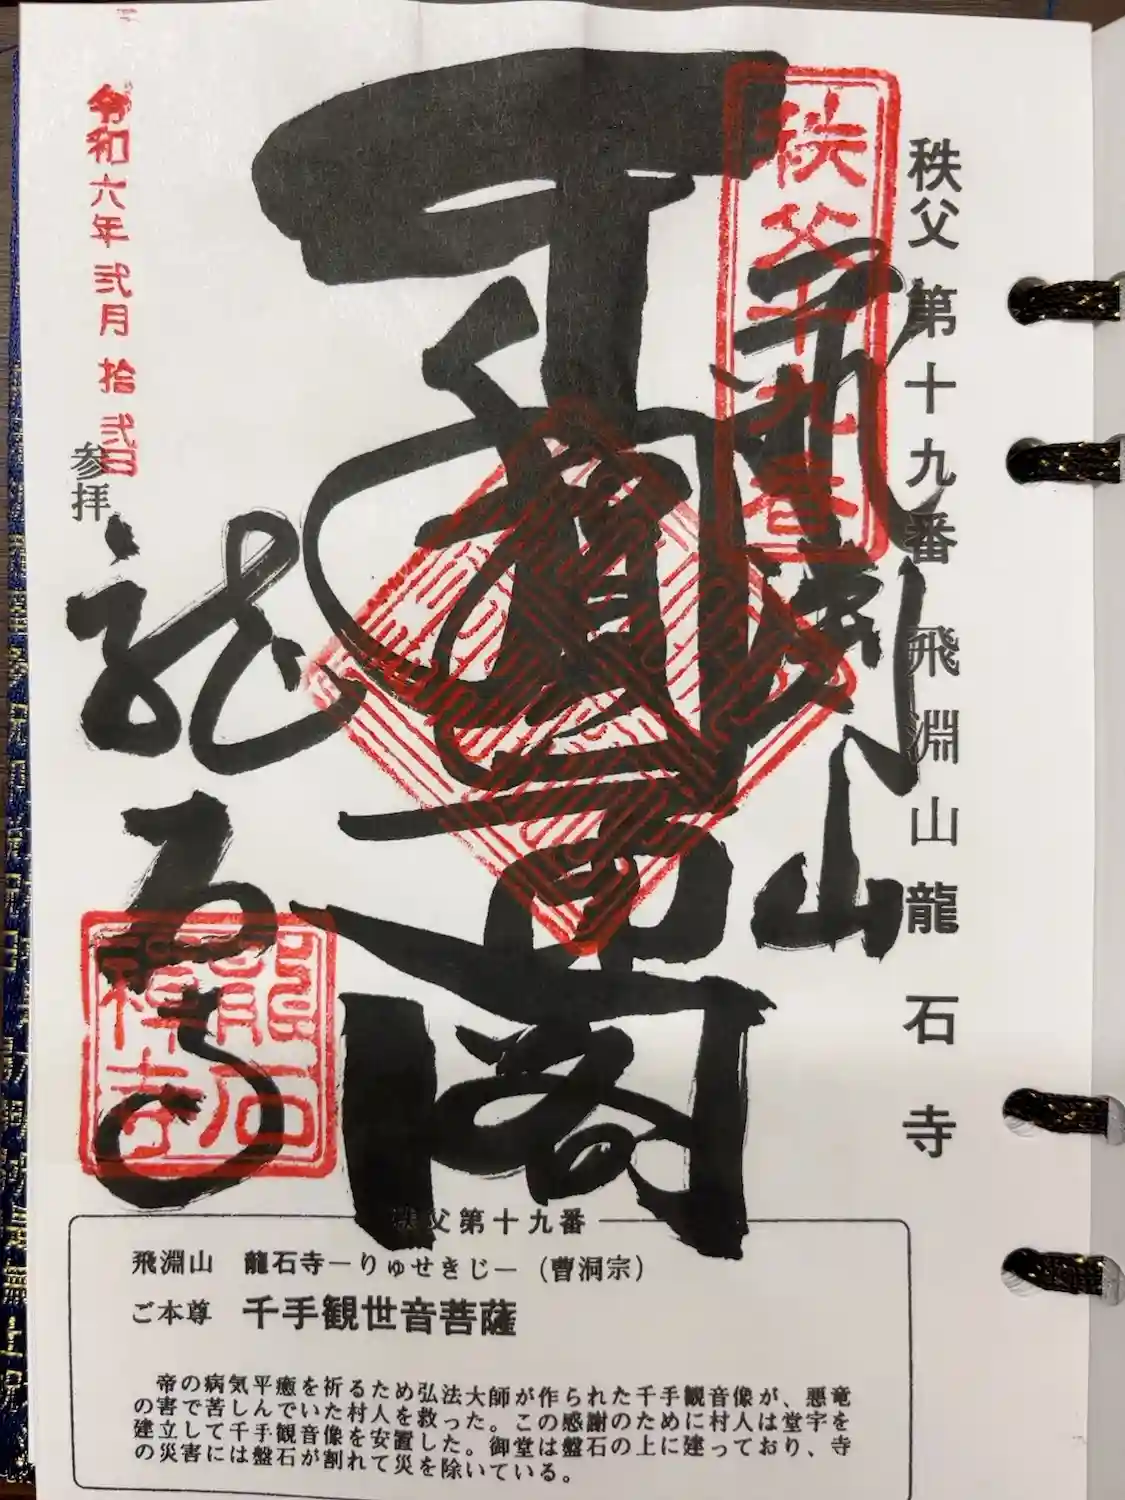 秩父 第十九番 飛淵山 龍石寺
秩父十九番
飛淵山
大閣
龍石寺
龍石
禅寺
令和六年弐月拾弐日
参拝
秩父第十九番
飛淵山 龍石寺―りゅせきじ―（曹洞宗）
ご本尊 千手観世音菩薩
帝の病気平癒を祈るため弘法大師が作られた千手観音像が、悪竜
の害で苦しんでいた村人を救った。この感謝のために村人は堂宇を
建立して千手観音像を安置した。御堂は盤石の上に建っており、寺
の災害には盤石が割れて災を除いている。